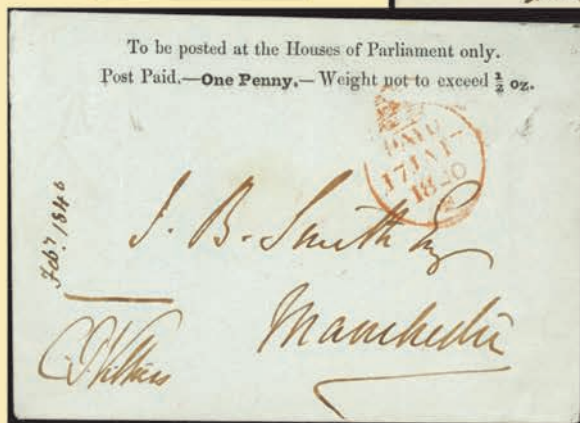 To be posted at the Houses of Parliament only.
Post Paid.—One Penny.—Weight not to exceed ½ oz.
PAID
17 JA 17
1840
J. B. Smith Esq
Manchester
C P Villiers